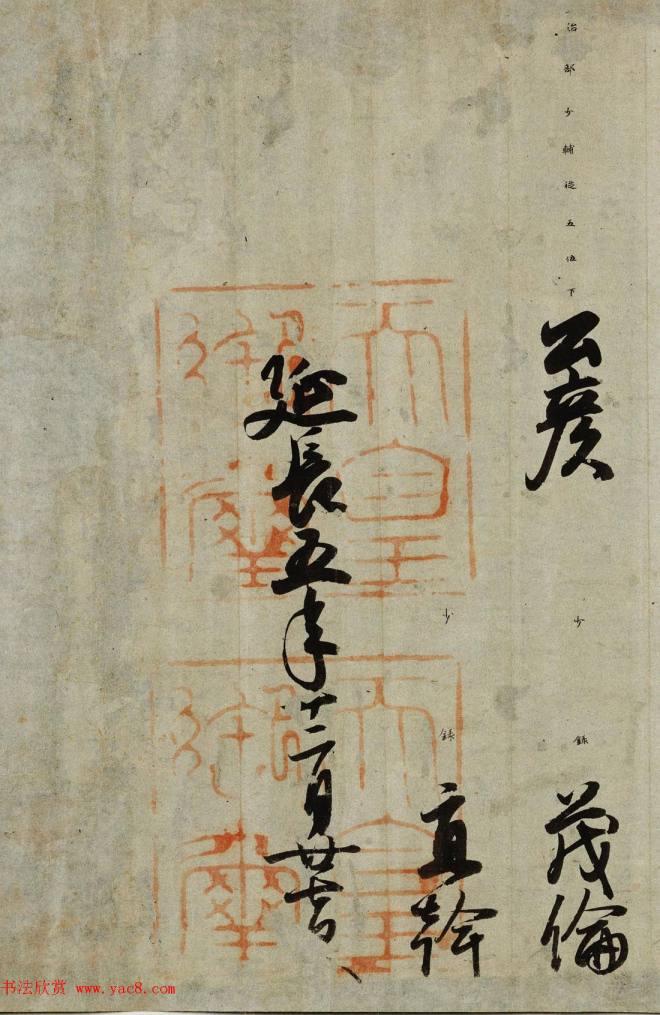 治部少輔從五位下 公彦 少録 茂倫
少録 直幹
延長五年十二月廿七日
天皇御璽
天皇御璽
书法欣赏 www.yac8.com